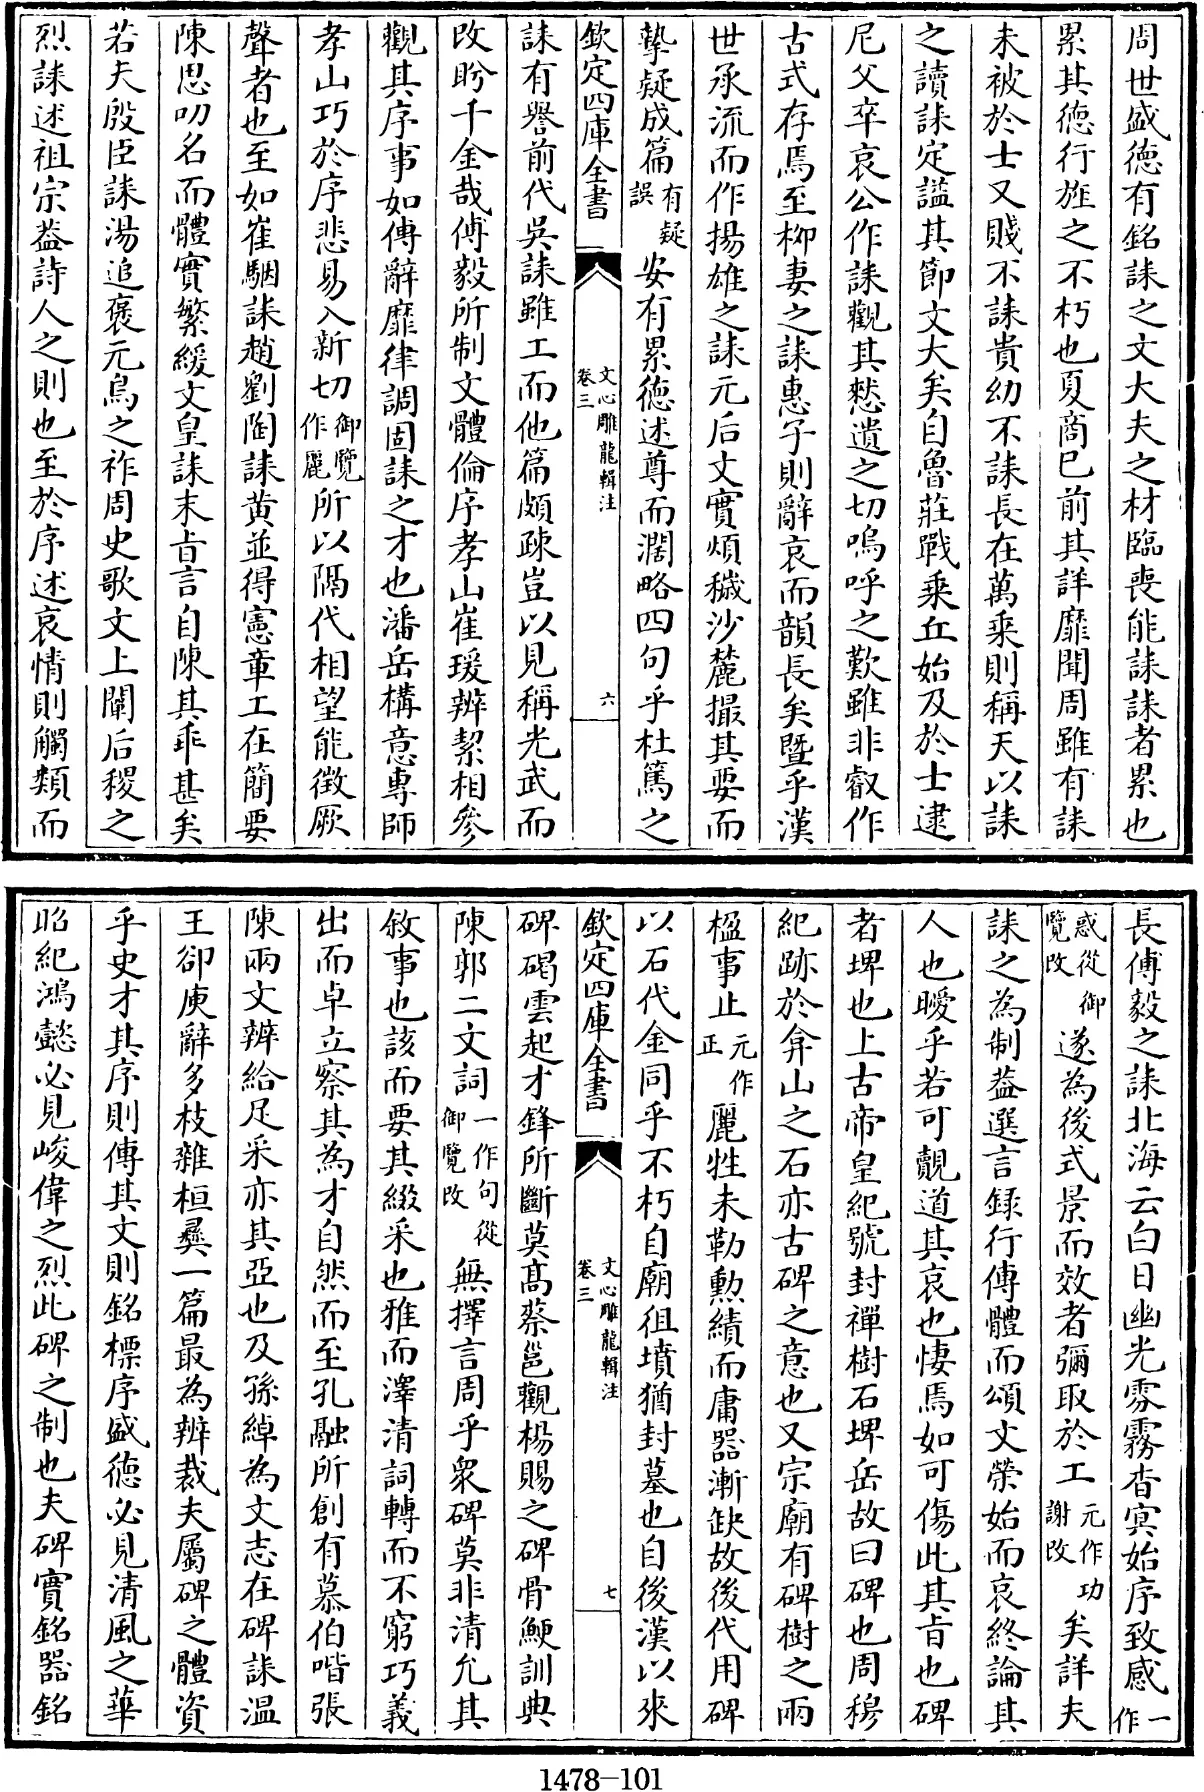 周世盛德有銘誄之文大夫之材臨喪能誄誄者累也
累其德行旌之不朽也夏商已前其詳靡聞周雖有誄
未被於士又賤不誄貴幼不誄長在萬乘則稱天以誄
之讀誄定諡其節文大矣自魯莊戰乘丘始及於士逮
尼父卒哀公作誄觀其憖遺之切嗚呼之歎雖非叡作
古式存焉至柳妻之誄惠子則辭哀而韻長矣暨乎漢
世承流而作揚雄之誄元后文實煩穢沙麓撮其要而
摯疑成篇有疑誤安有累德述尊而濶略四句乎杜篤之
欽定四庫全書 文心雕龍輯注 卷三 六
誄有譽前代吳誄雖工而他篇頗疎豈以見稱光武而
改盻千金哉傅毅所制文體倫序孝山崔瑗辨絜相參
觀其序事如傳辭靡律調固誄之才也潘岳構意專師
孝山巧於序悲易入新切御覽作麗所以隔代相望能徵厥
聲者也至如崔駰誄趙劉陶誄黃並得憲章工在簡要
陳思叨名而體實繁緩文皇誄末旨言自陳其乖甚矣
若夫殷臣誄湯追褒元鳥之祚周史歌文上闡后稷之
烈誄述祖宗葢詩人之則也至於序述哀情則觸類而
長傅毅之誄北海云白日幽光雰霧杳冥始序致感一作
惑從御覽改遂為後式景而效者彌取於工元作功謝改矣詳夫
誄之為制葢選言録行傳體而頌文榮始而哀終論其
人也曖乎若可覿道其哀也悽焉如可傷此其旨也碑
者埤也上古帝皇紀號封禪樹石埤岳故曰碑也周穆
紀跡於弇山之石亦古碑之意也又宗廟有碑樹之兩
楹事止元作正麗牲未勒勲績而庸器漸缺故後代用碑
以石代金同乎不朽自廟徂墳猶封墓也自後漢以來
欽定四庫全書 文心雕龍輯注 卷三 七
碑碣雲起才鋒所斷莫髙蔡邕觀楊賜之碑骨鯁訓典
陳郭二文詞一作句從御覽改無擇言周乎衆碑莫非清允其
敘事也該而要其綴采也雅而澤清詞轉而不窮巧義
出而卓立察其為才自然而至孔融所創有慕伯喈張
陳兩文辨給足采亦其亞也及孫綽為文志在碑誄溫
王郤庾辭多枝雜桓彞一篇最為辨裁夫屬碑之體資
乎史才其序則傳其文則銘標序盛德必見清風之華
昭紀鴻懿必見峻偉之烈此碑之制也夫碑實銘器銘
1478-101